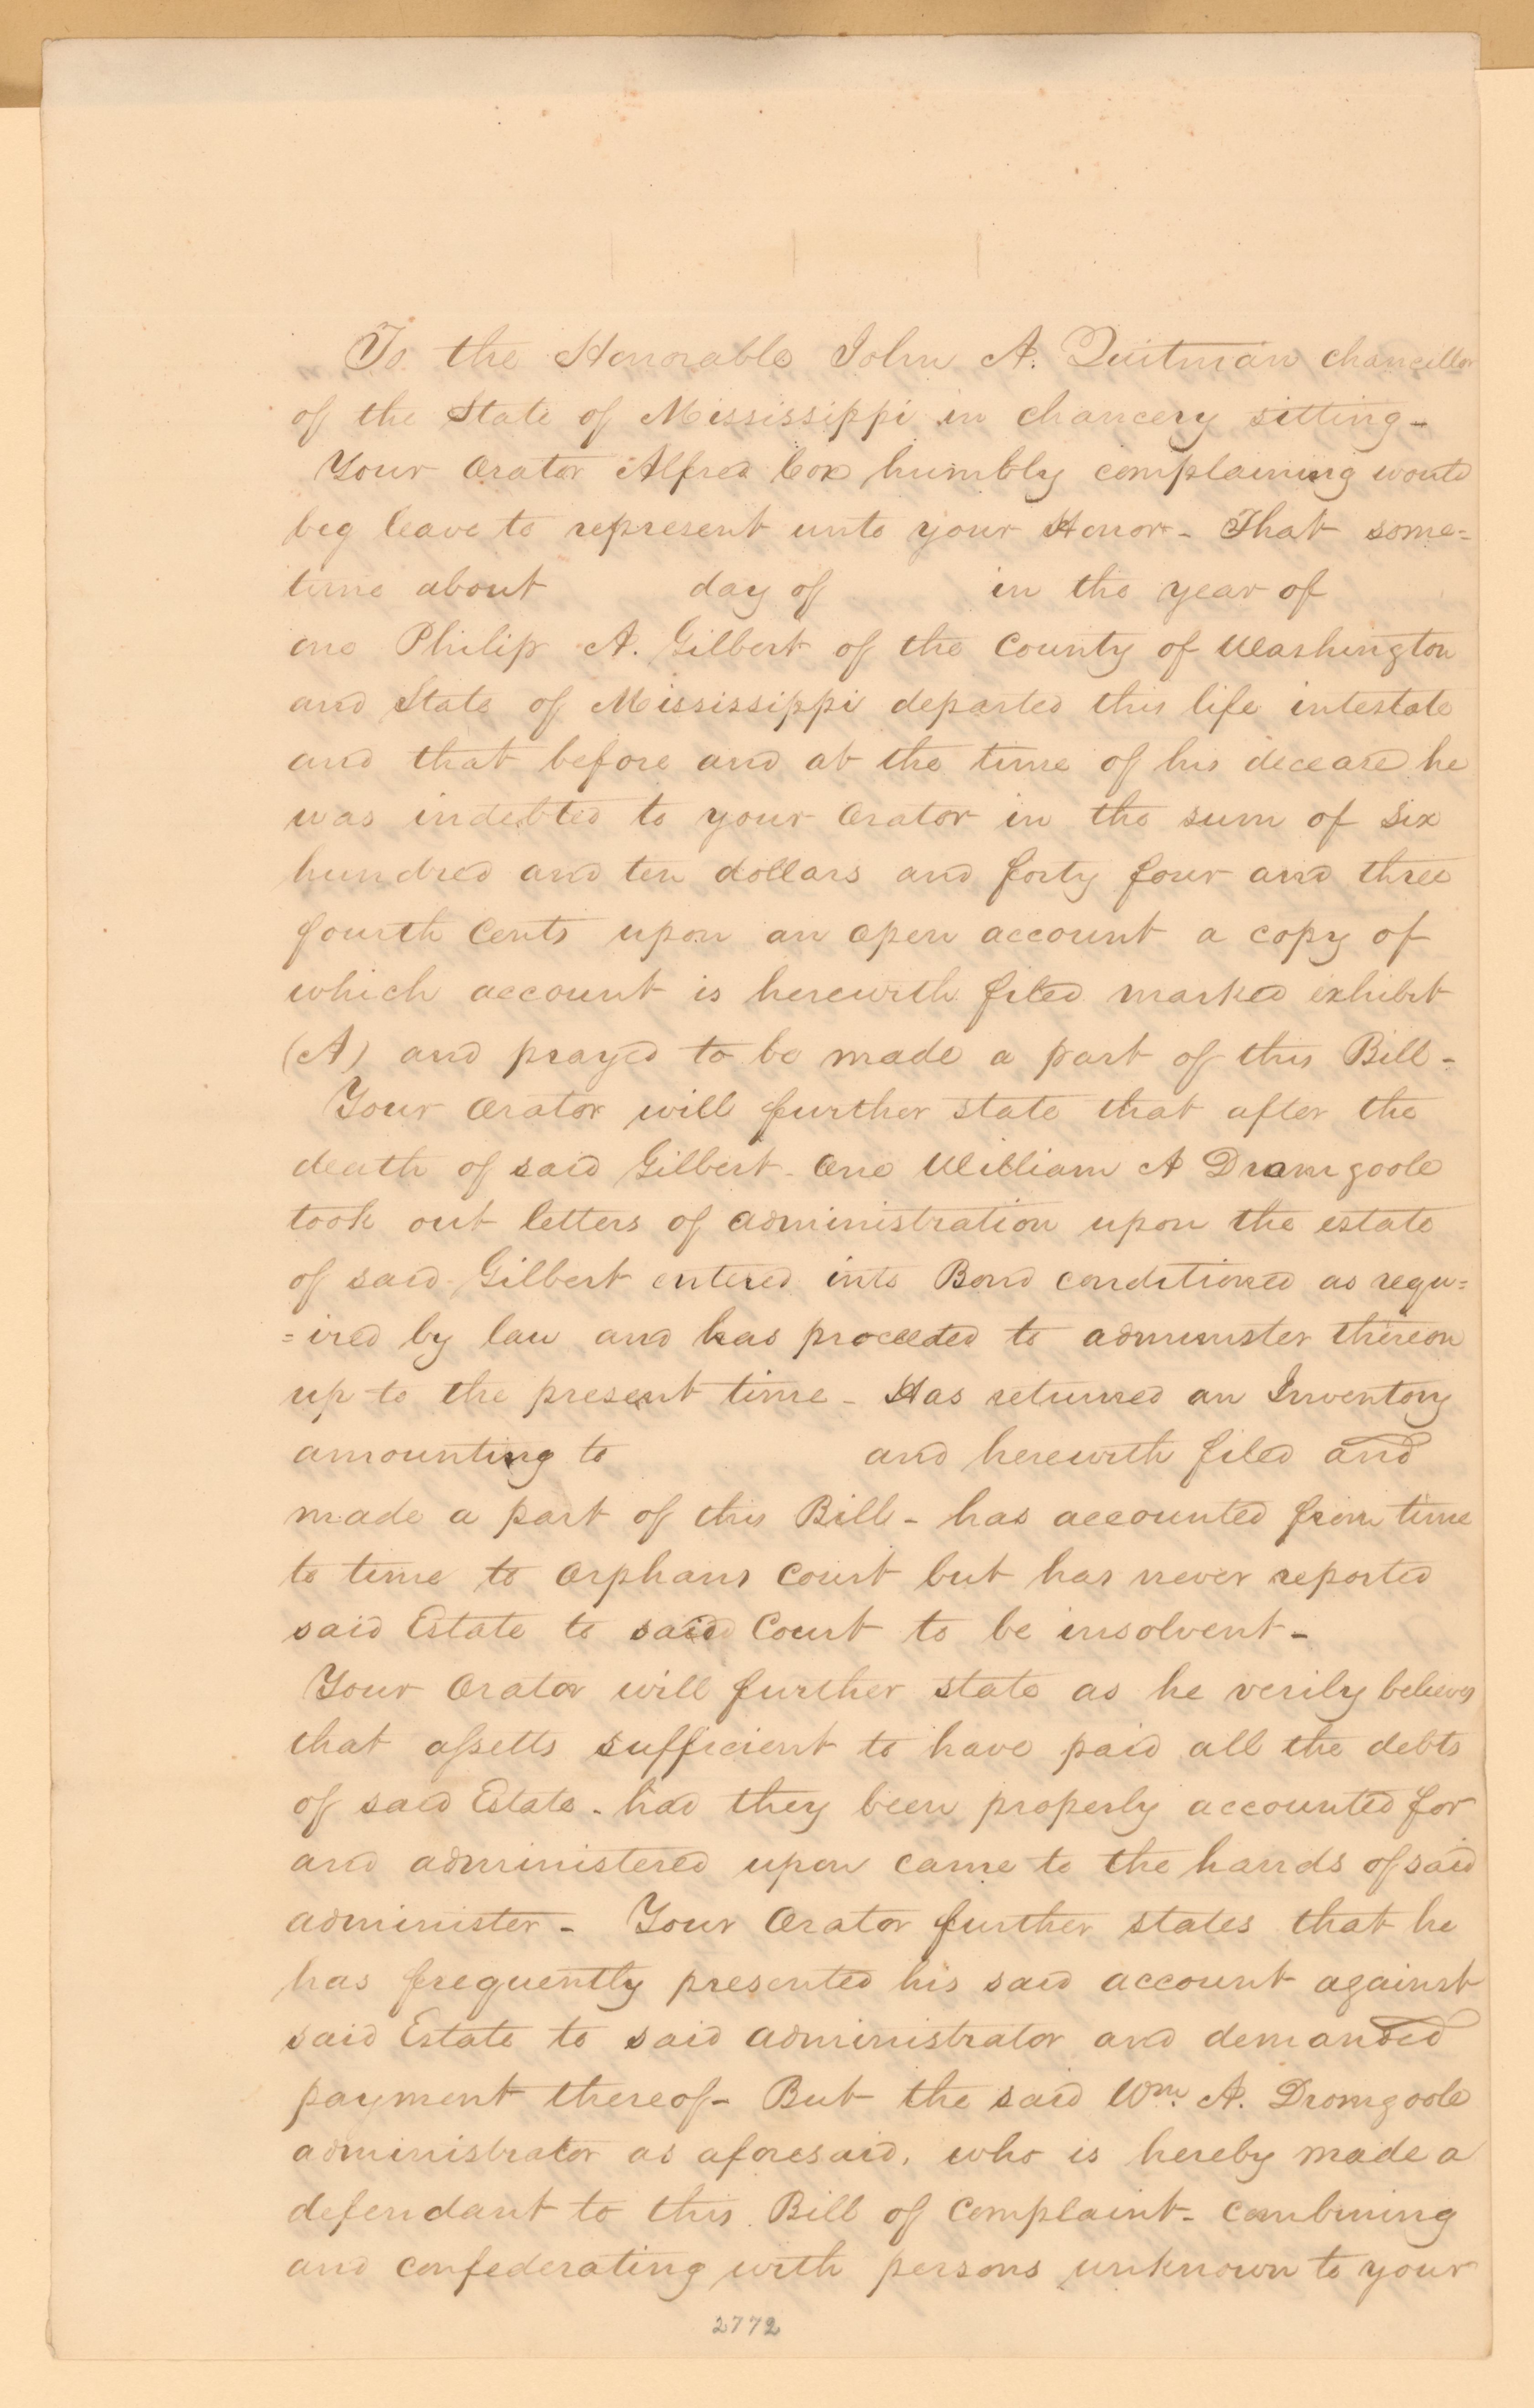 To the Honorable John A. Quitman chancellor
of the State of Mississippi in chancery sitting-
Your Orator Alfred Cox humbly complaining would
beg leave to represent unto your Honor- That some=
time about day of in the year of
one Philip A. Gilbert of the County of Washington
and State of Mississippi departed this life intestate
and that before and at the time of his decease he
was indebted to your Orator in the sum of Six
hundred and ten dollars and forty four and three
fourth Cents upon an open account a copy of
which account is herewith filed marked exhibit
(A) and prayed to be made a part of this Bill-
Your Orator will further state that after the
death of said Gilbert- One William A Dromgoole
took out letters of administration upon the estate
of said Gilbert entered into Bond conditioned as requ=
=ired by law and has proceeded to administer thereon
up to the present time- Has returned an Inventory
amounting to and herewith filed and
made a part of this Bill- has accounted from time
to time to Orphans Court but has never reported
said Estate to said Court to be insolvent-
Your Orator will further state as he verily believes
that assetts sufficient to have paid all the debts
of said Estate- had they been properly accounted for
and administered upon came to the hands of said
administer- Your Orator further states that he
has frequently presented his said account against
said Estate to said administrator and demanded
payment thereof- But the said Wm. A. Dromgoole
administrator as aforesaid, who is hereby made a
defendant to this Bill of complaint- combining
and confederating with persons unknown to your
2772